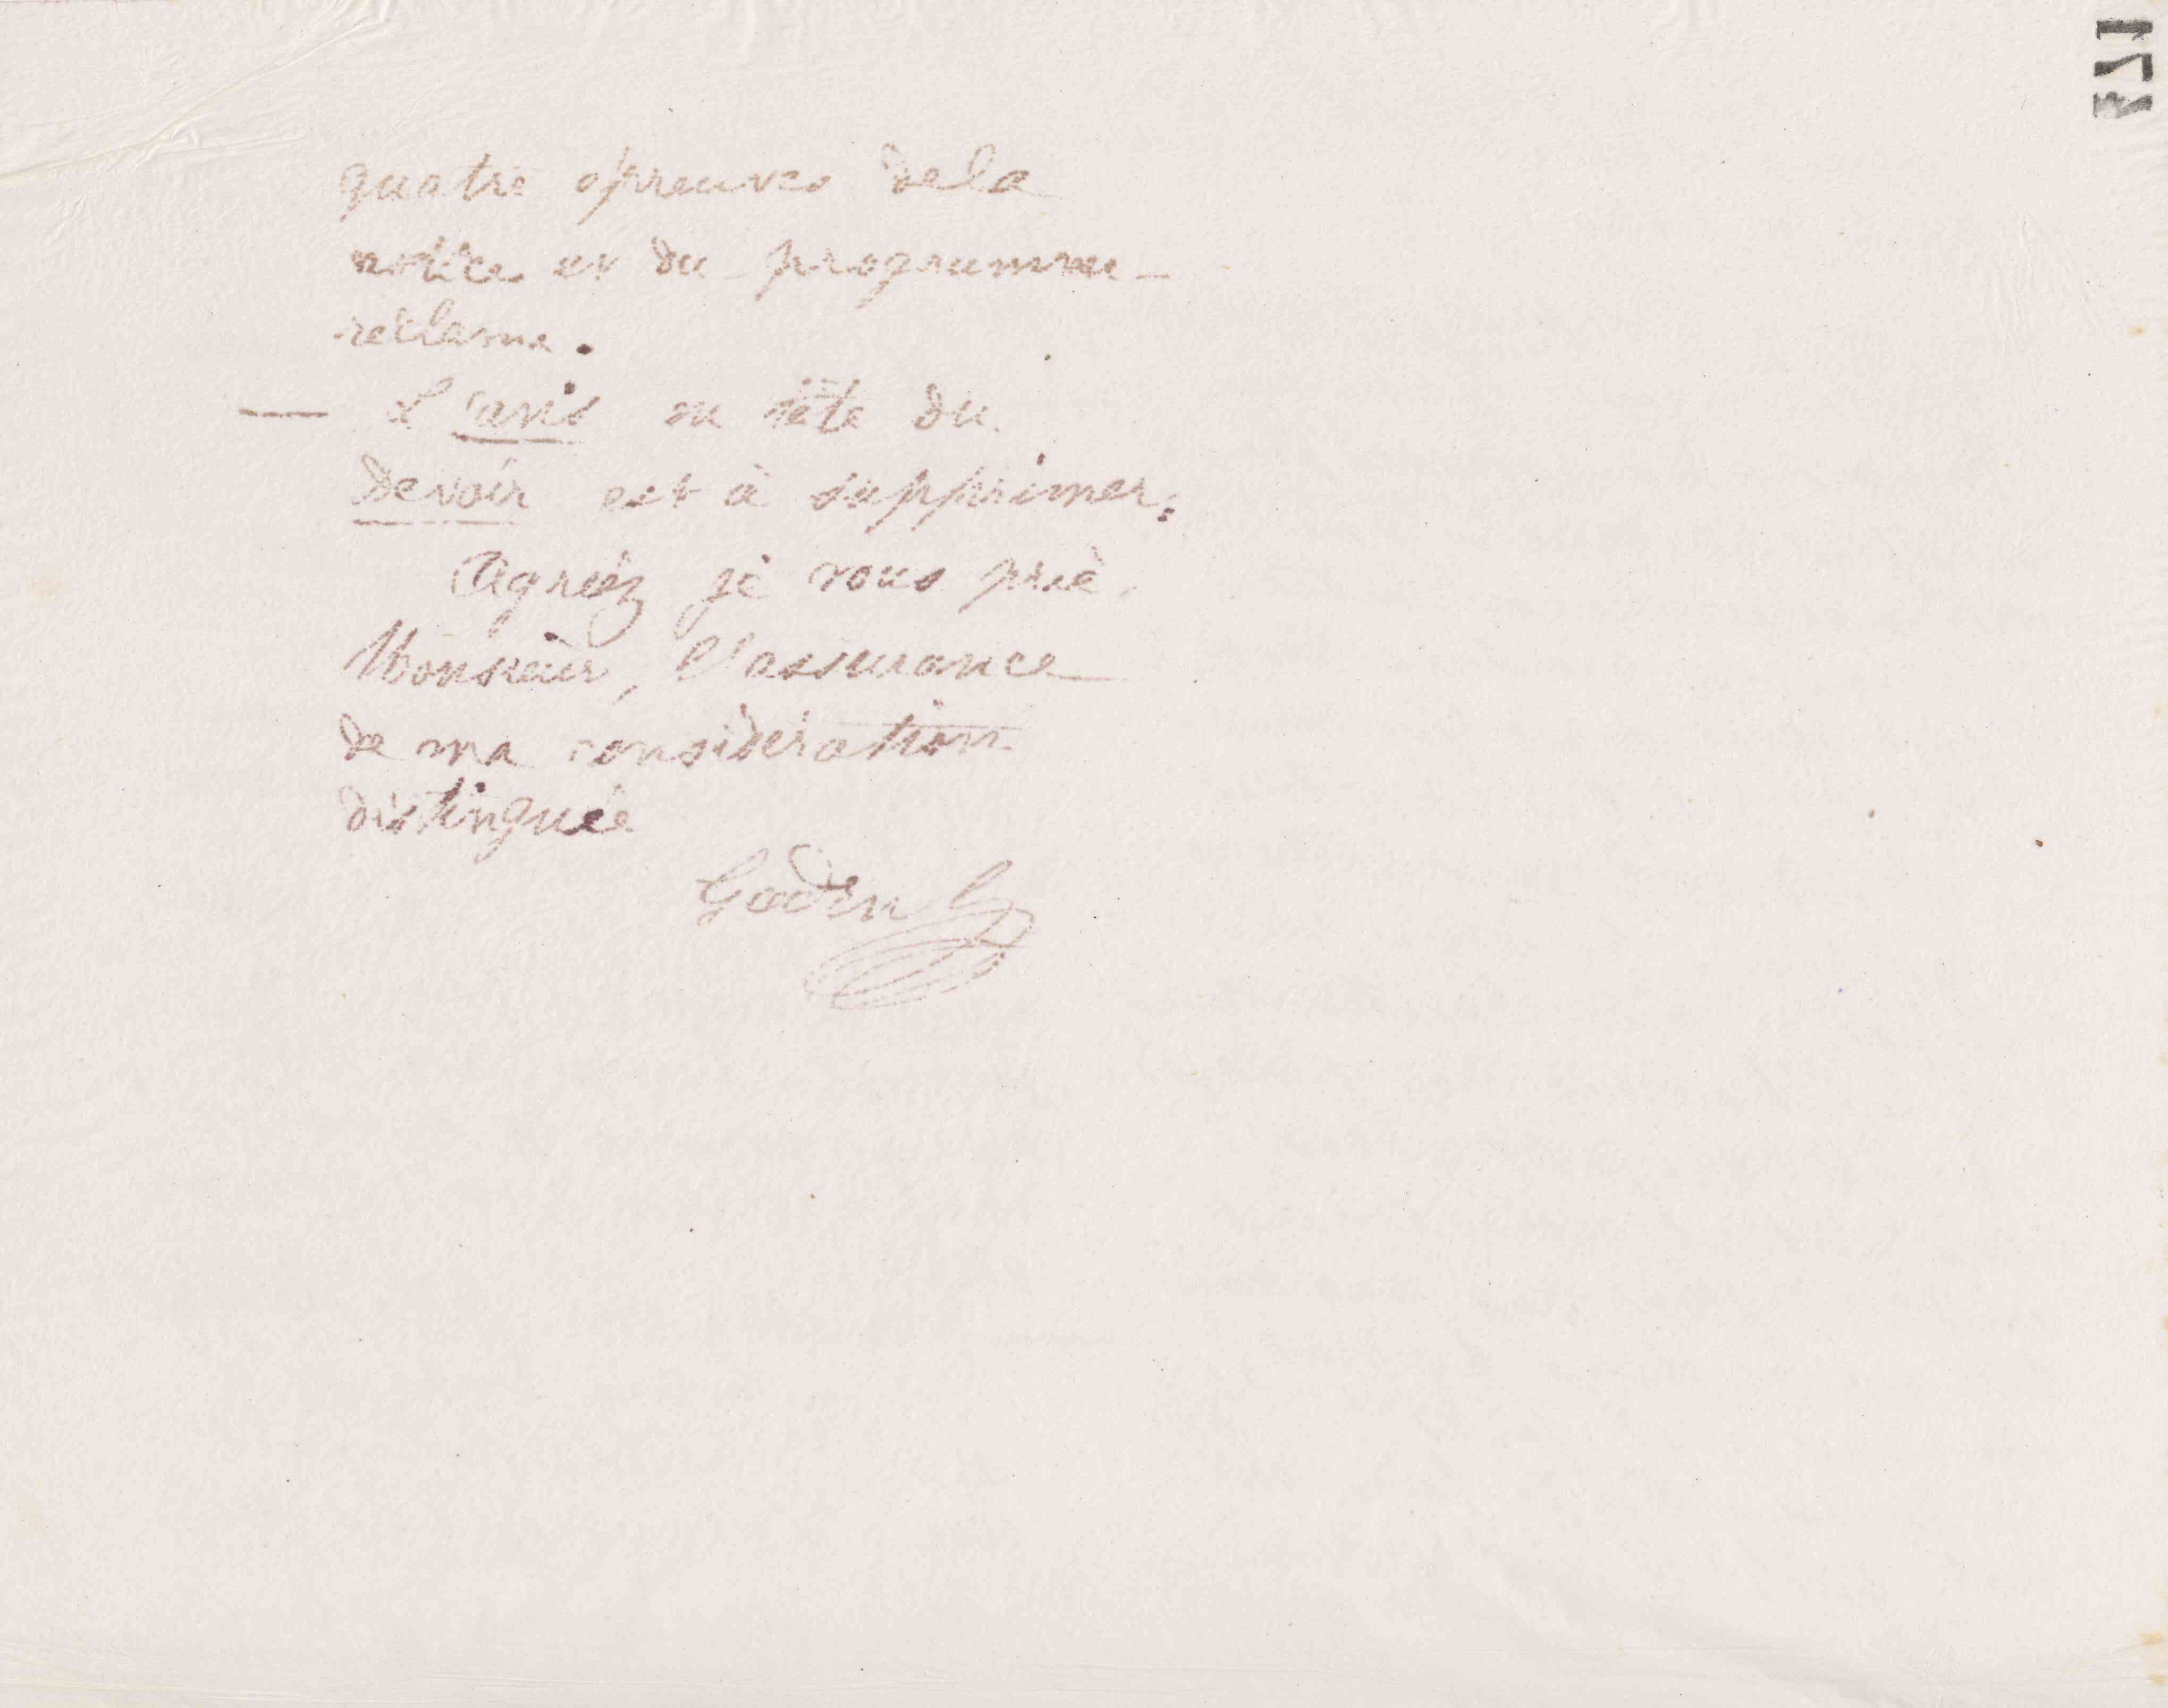 quatre épreuves de la
notice et du programme-
réclame.
— L'avis en tête du
Devoir est à supprimer.
Agréez je vous prie,
Monsieur, l'assurance
de ma considération
distinguée
Godin